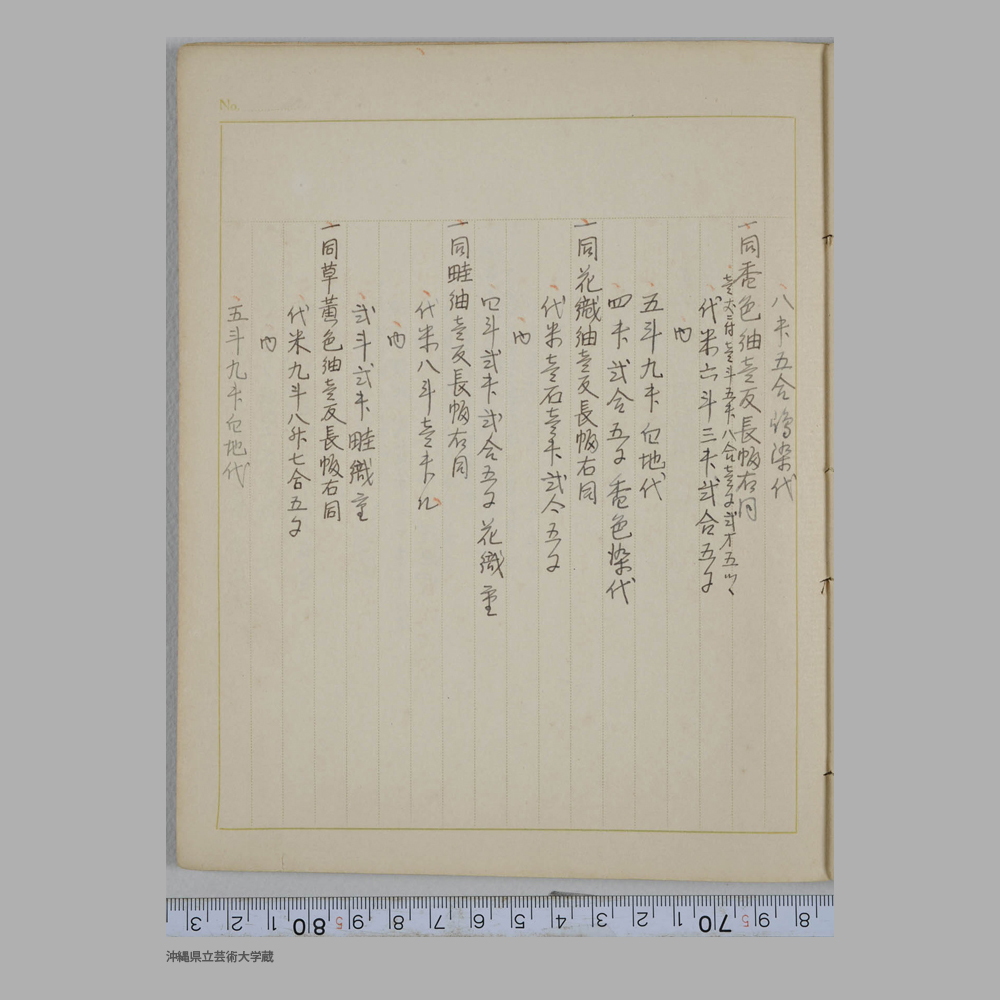 No.
八升五合 染代
一同香色紬壱反長幅右同
壱丈ニ付壱斗五升八合壱勺弐才五
代米六斗三升弐合五勺
内
五斗九升白地代
四升弐合五勺香色染代
一同花織紬壱反長幅右同
代米壱石壱升弐合五勺
内
四斗弐升弐合五勺花織重
一同畦紬壱反長幅右同
代米八斗壱升
内
弐斗弐升畦織重
一同草黄色紬壱反長幅右同
代米九斗八升七合五勺
内
五斗九升白地代
3 2 1 80 5 9 8 7 6 5 4 3 2 1 70 5 9 8
沖縄県立芸術大学蔵